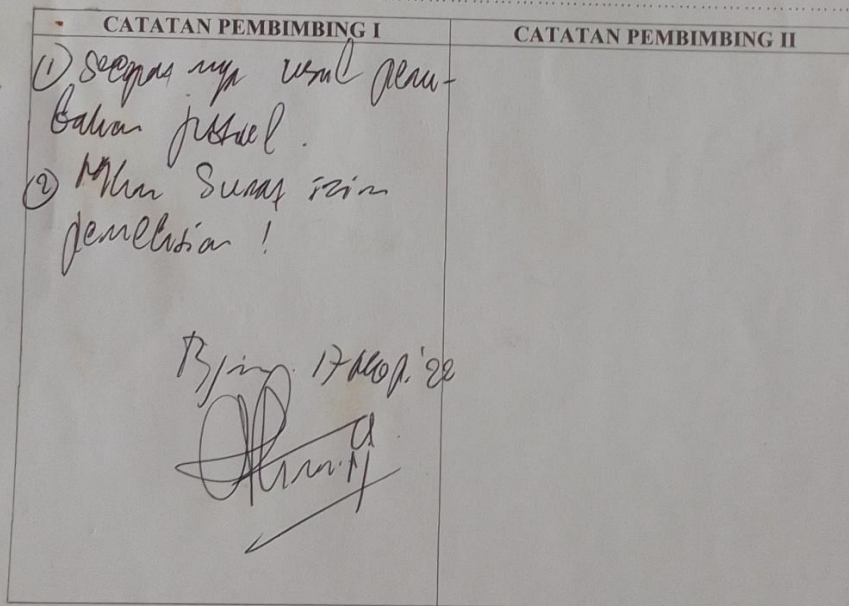 CATATAN PEMBIMBING I
CATATAN PEMBIMBING II
① usul peru-
bahan judul.
② Mhn Surat izin
penelitian !
17 '22